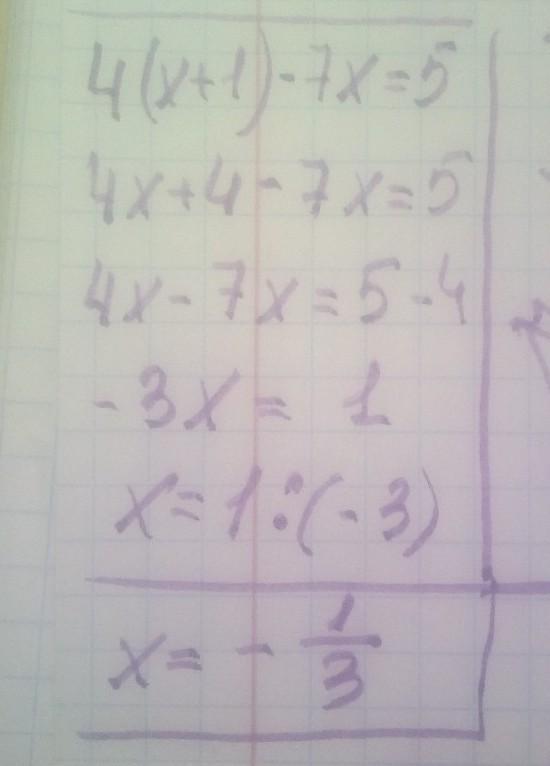 4(x+1)-7x=5
4x+4-7x=5
4x-7x=5-4
-3x= 1
x=1:(-3)
x= - 1/3